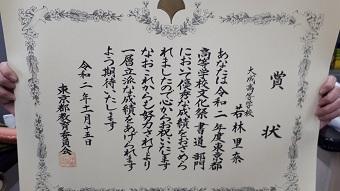 賞状
大成高等学校
若林里奈
あなたは令和二年度東京都
高等学校文化祭書道部門
において優秀な成績をおさめら
れましたので心からお祝いたします
なおこれからも努力されてより
一層立派な成績をあげられます
よう期待いたします
令和二年十一月十五日
東京都教育委員会